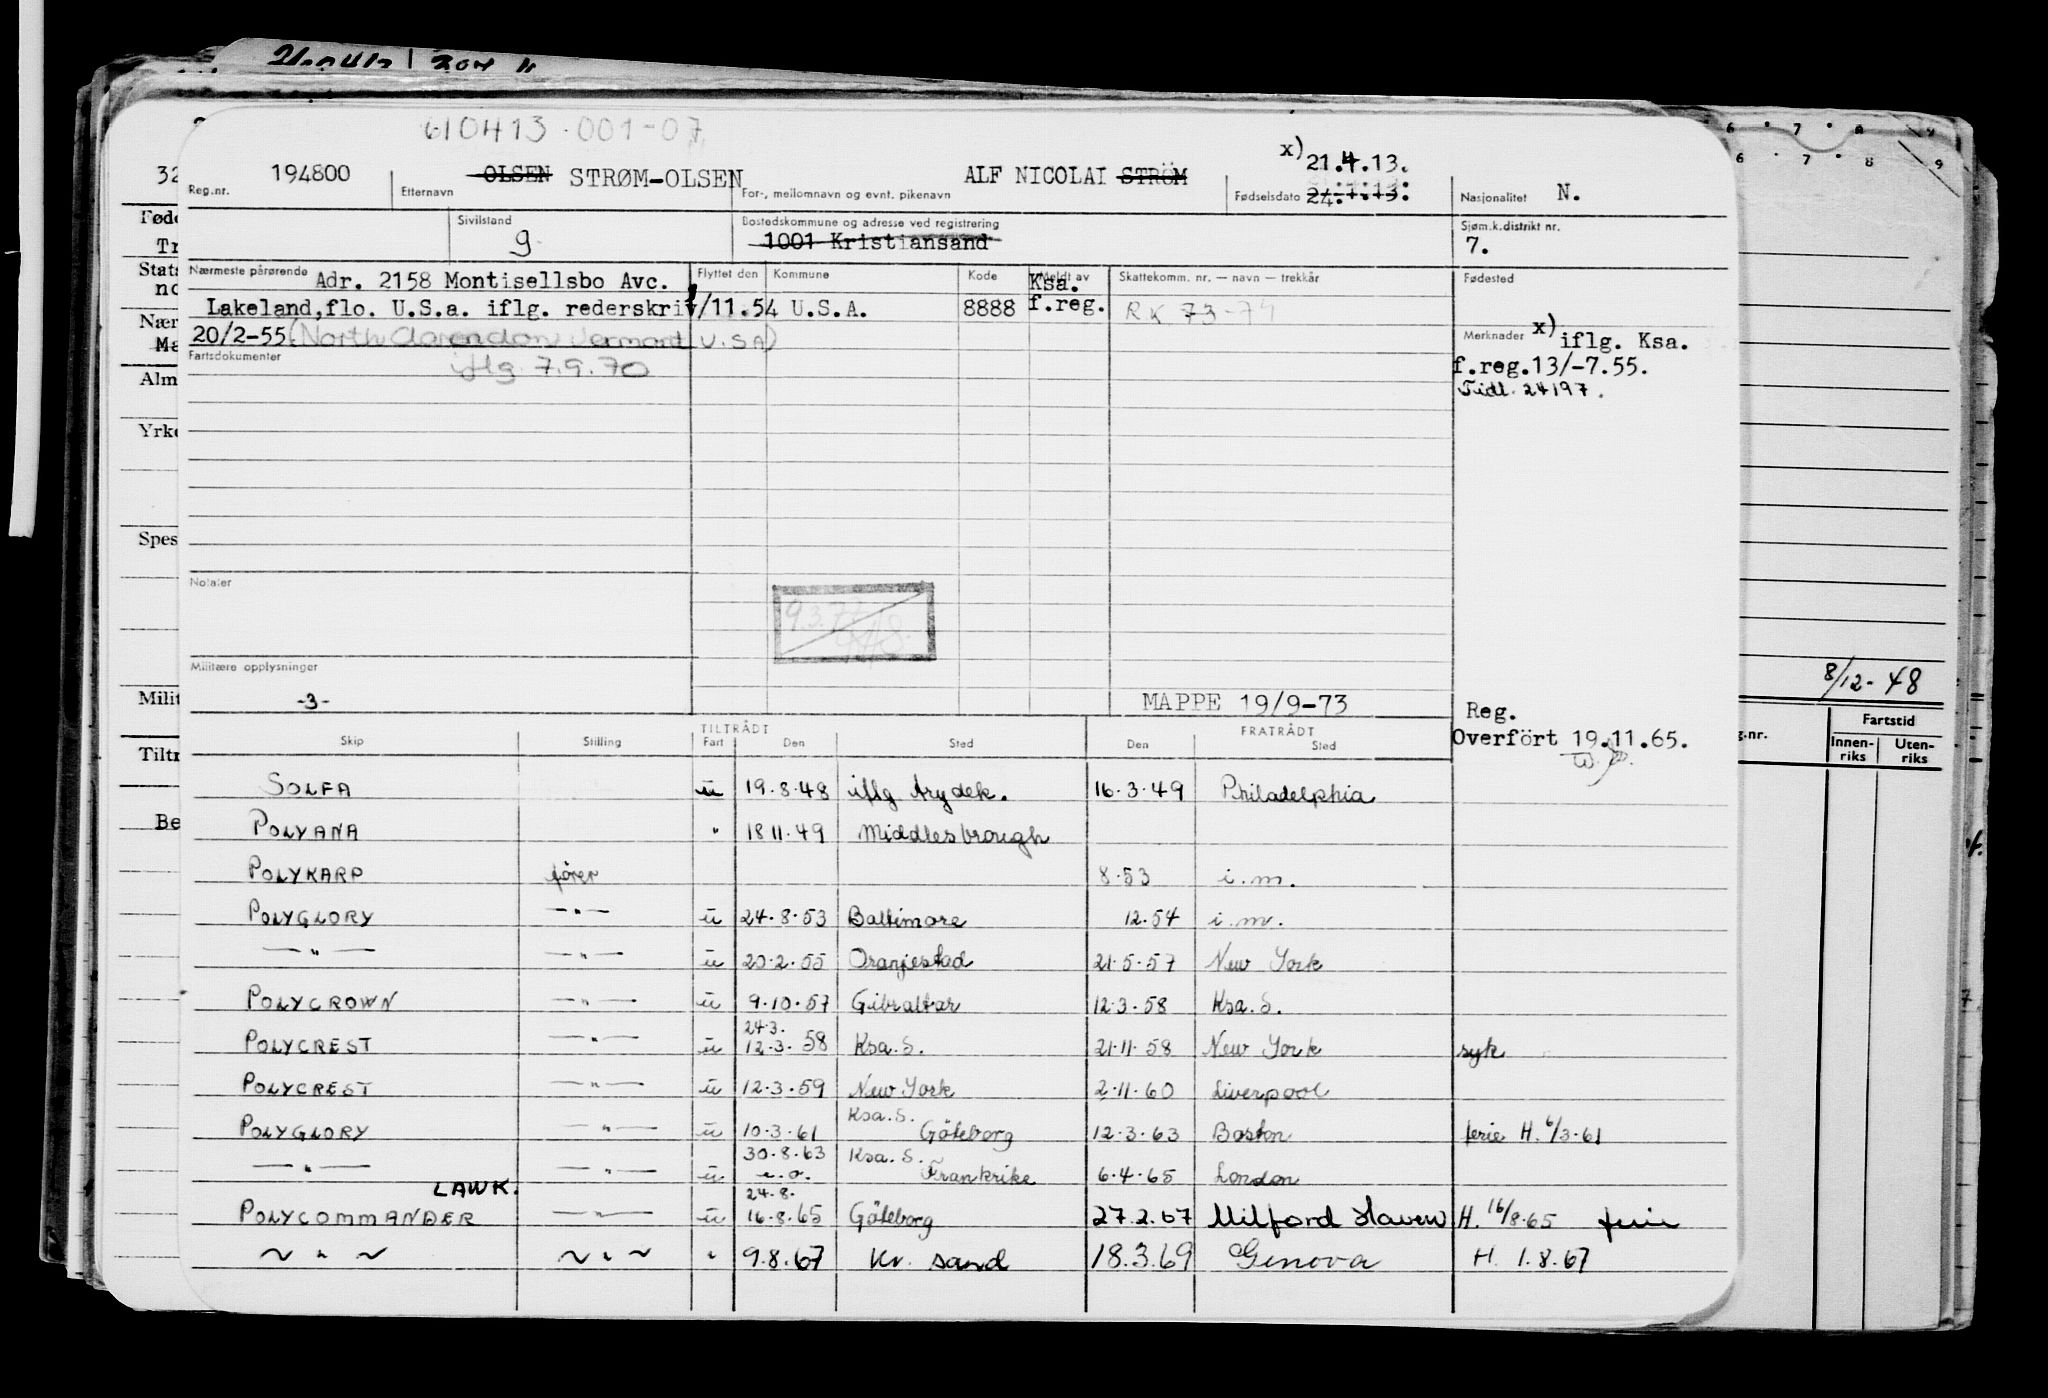 610413.001-07
194800 OLSEN STRØM-OLSEN ALF NICOLAI STRÖM x) 21.4.13.
Reg.nr. Etternavn For-, mellomnavn og evnt. pikenavn Fødselsdato 24.7.13. Nasjonalitet N.
Sivilstand g. Bostedskommune og adresse ved registrering Sjøm.k.distrikt nr.
1001 Kristiansand 7.
Nærmeste pårørende Adr. 2158 Montisellsbo Avc. Flyttet den Kommune Kode Meldt av Ksa. Skattekomm. nr. — navn — trekkår Fødested
Lakeland,flo. U.S.a. iflg. rederskriv /11.54 U.S.A. 8888 f.reg. RK 73-74
20/2-55 (North Clarendon Vermont U.S.A) Merknader x) iflg. Ksa.
Fartsdokumenter iflg. 7.9.70 f.reg.13/-7.55.
Tidl. 24197.
Notater
Militære opplysninger
-3- MAPPE 19/9-73 Reg.
TILTRÅDT FRATRÅDT
Skip Stilling Fart Den Sted Den Sted Overført 19.11.65.
SOLFA u 19.8.48 iflg Arydek. 16.3.49 Philadelphia
POLYANA " 18 11.49 Middlesbrough
POLYKARP fører 8.53 i.m.
POLYGLORY —"— u 24.8.53 Baltimore 12.54 i.m.
—"— —"— u 20.2.55 Oranjestad 21.5.57 New York
POLYCROWN —"— u 9.10.57 Gibraltar 12.3.58 Ksa.S.
24.3.
POLYCREST —"— u 12.3.58 Ksa.S. 21.11.58 New York syk
POLYCREST —"— u 12.3.59 New York 2.11.60 Liverpool
Ksa.S.
POLYGLORY —"— u 10.3.61 Göteborg 12.3.63 Boston ferie H. 6/3.61
30.8.63 Ksa.S.
—"— —"— u e.o. Frankrike 6.4.65 London
LAWK. 24.8.
POLYCOMMANDER —"— u 16.8.65 Göteborg 27.2.67 Milford Haven H. 16/8.65 ferie
~ " ~ ~ " ~ " 9.8.67 Kr. sand 18.3.69 Genova H. 1.8.67
Stats
Nær
Alm
Yrke
Spes
Milit
Tiltr
Be
8/12-48
Fartstid
Innen-riks Uten-riks